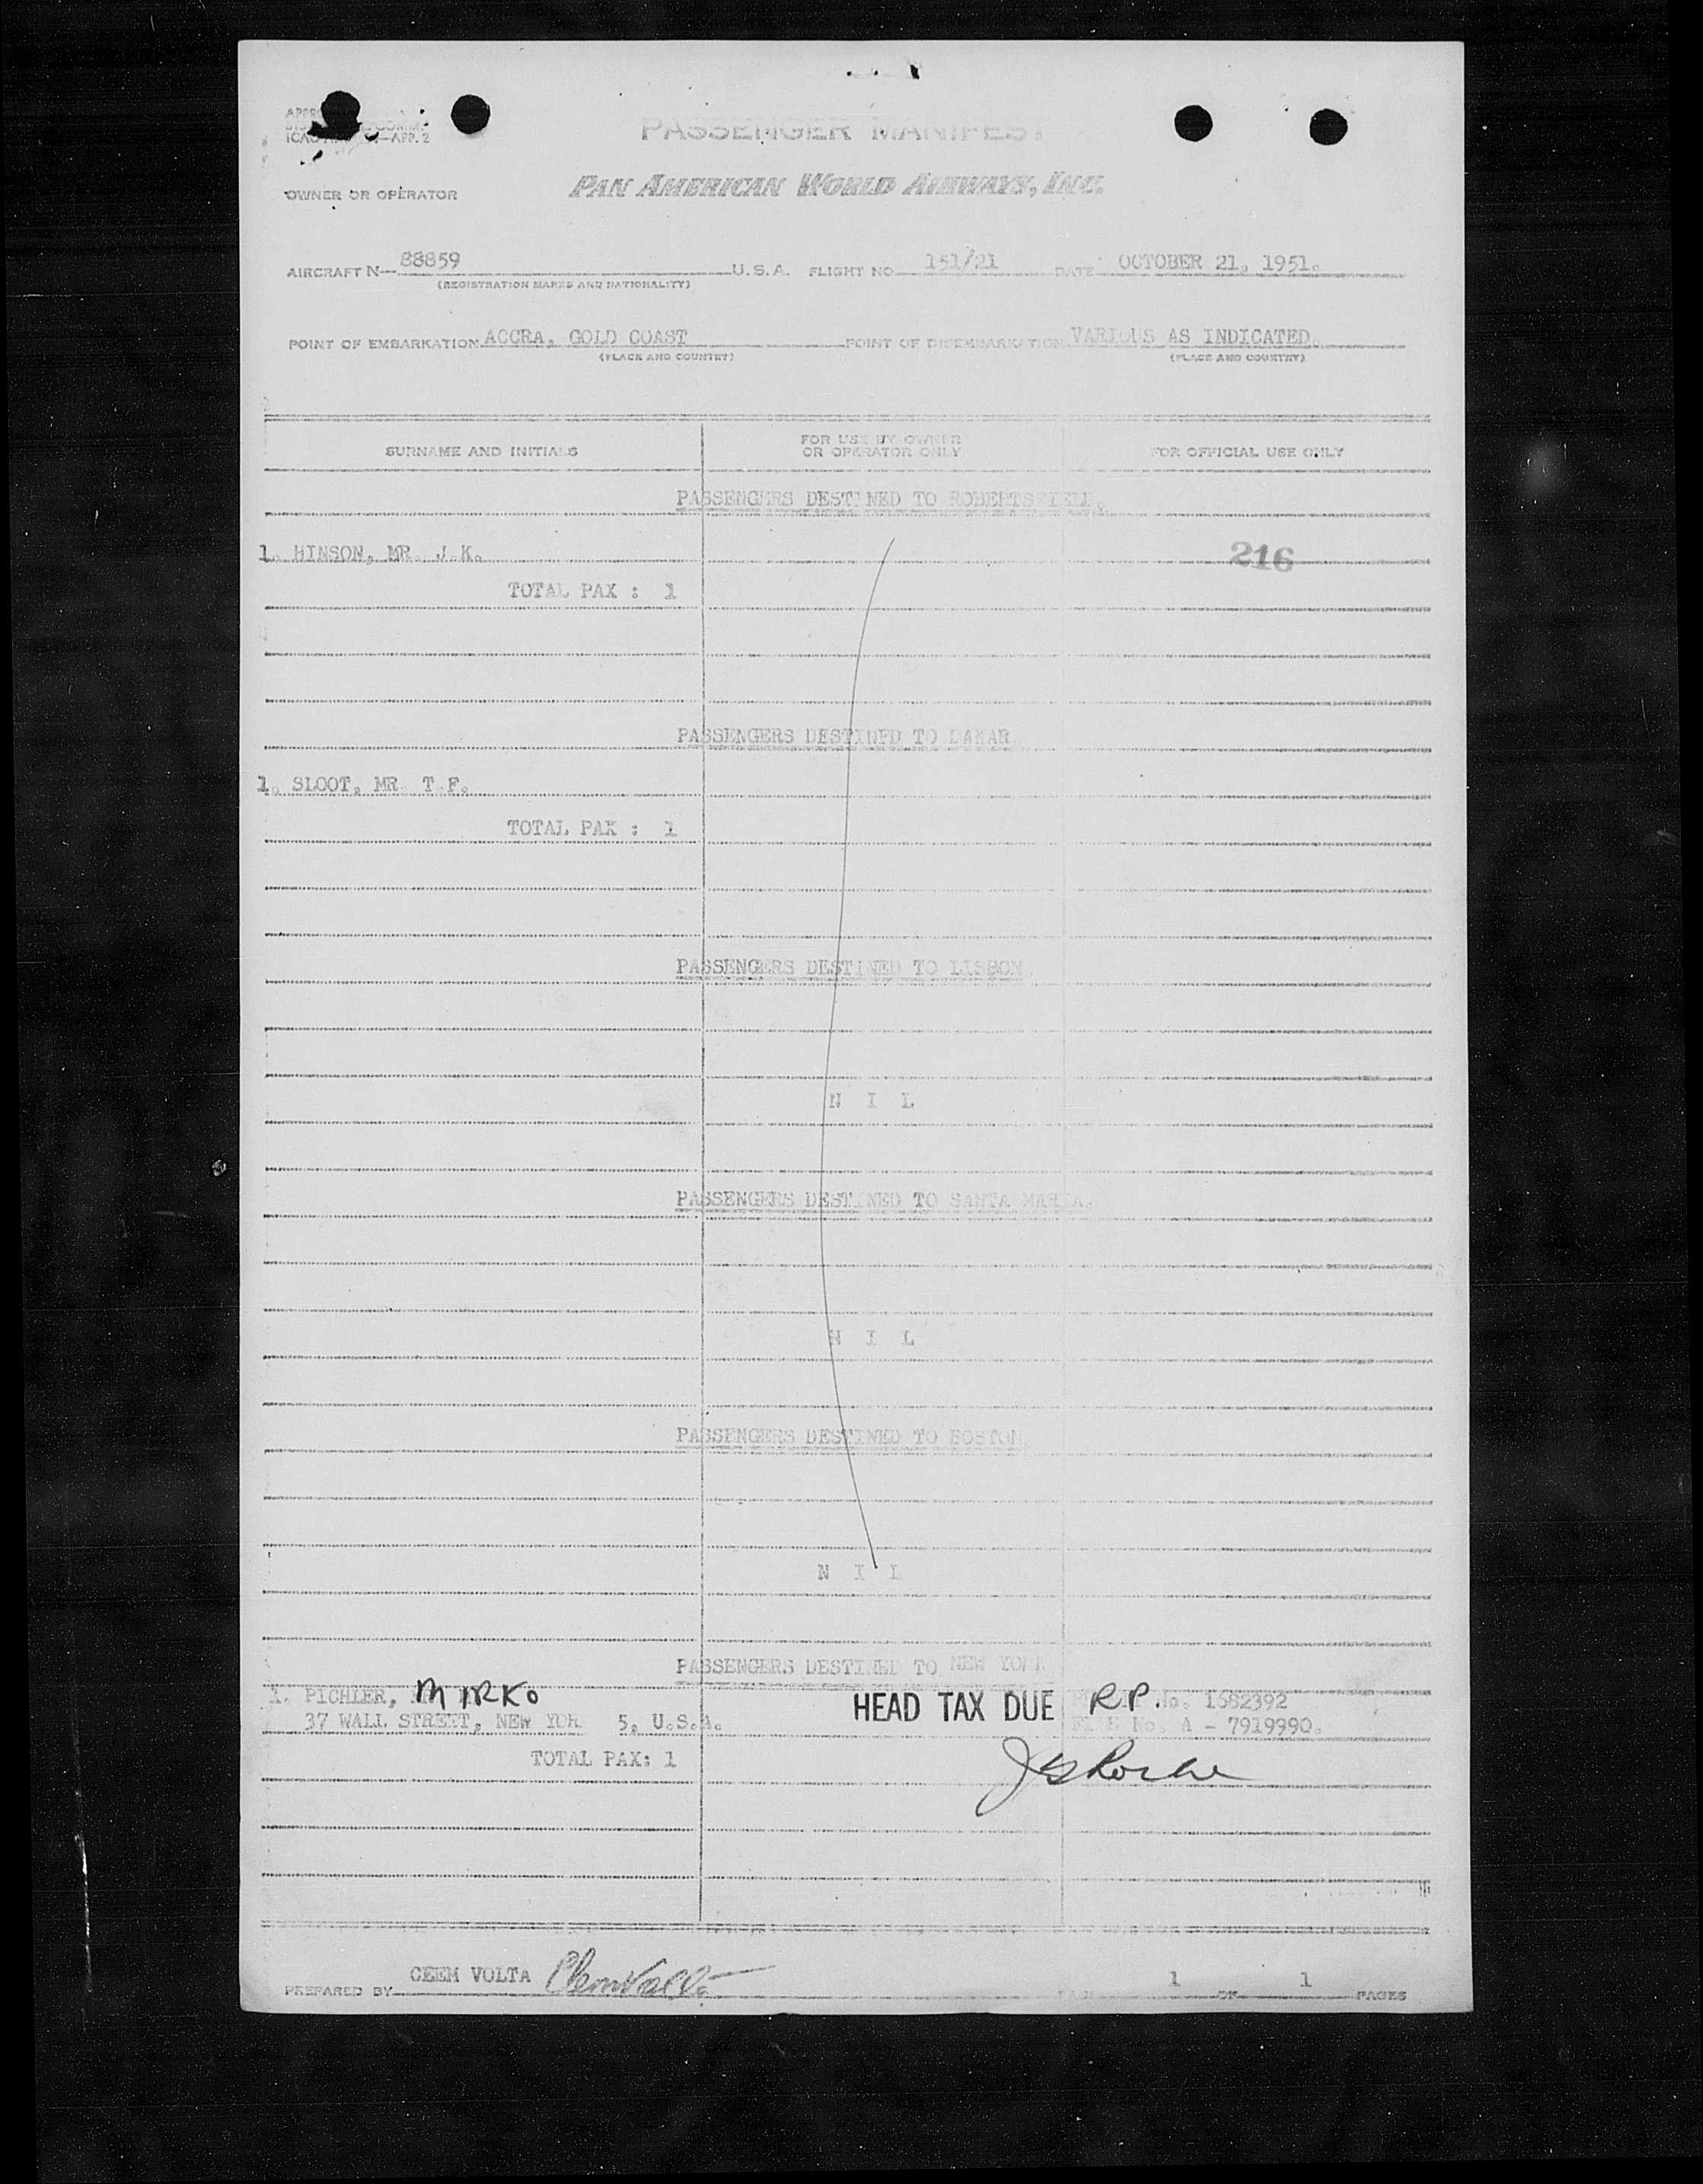 ICAO APP. 2
PASSENGER MANIFEST
OWNER OR OPERATOR PAN AMERICAN WORLD AIRWAYS, INC.
AIRCRAFT N- 88859 U.S.A. FLIGHT NO 151/21 DATE OCTOBER 21, 1951.
(REGISTRATION MARKS AND NATIONALITY)
POINT OF EMBARKATION ACCRA, GOLD COAST POINT OF DISEMBARKATION VARIOUS AS INDICATED.
(PLACE AND COUNTRY) (PLACE AND COUNTRY)
SURNAME AND INITIALS FOR USE BY OWNER OR OPERATOR ONLY FOR OFFICIAL USE ONLY
PASSENGERS DESTINED TO ROBERTSFIELD.
1. HINSON, MR. J.K. 216
TOTAL PAX : 1
PASSENGERS DESTINED TO DAKAR
1. SLOOT, MR. T.F.
TOTAL PAX : 1
PASSENGERS DESTINED TO LISBON
N I L
PASSENGERS DESTINED TO SANTA MARIA.
N I L
PASSENGERS DESTINED TO BOSTON
N I L
PASSENGERS DESTINED TO NEW YORK
1. PICHLER, MIRKO HEAD TAX DUE R.P. No. 1582392
37 WALL STREET, NEW YORK 5, U.S.A. No. A - 7919990.
TOTAL PAX: 1
PREPARED BY CEEM VOLTA PAGE 1 OF 1 PAGES